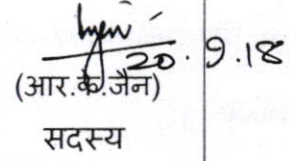 20.9.18
(आर.के.जैन)
सदस्य